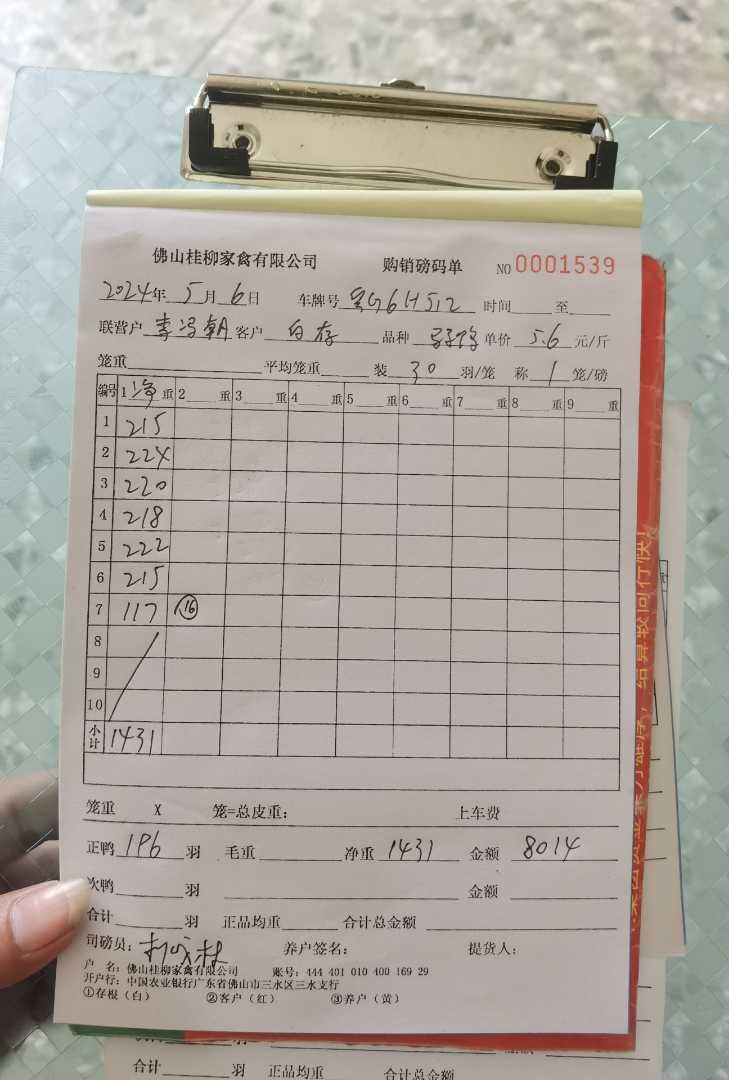 佛山桂柳家禽有限公司 购销磅码单 NO 0001539
2024年 5月 6日 车牌号 6H512 时间 至
联营户 李冯朝 客户 白存 品种 单价 5.6 元/斤
笼重 平均笼重 装 30 羽/笼 称 1 笼/磅
编号 1 净 重 2 重 3 重 4 重 5 重 6 重 7 重 8 重 9 重
1 215
2 224
3 220
4 218
5 222
6 215
7 117 16
8
9
10
小计 1431
笼重 X 笼=总皮重: 上车费
正鸭 196 羽 毛重 净重 1431 金额 8014
次鸭 羽 金额
合计 羽 正品均重 合计总金额
司磅员: 养户签名: 提货人:
户 名: 佛山桂柳家禽有限公司 账号: 444 401 010 400 169 29
开户行: 中国农业银行广东省佛山市三水区三水支行
①存根（白） ②客户（红） ③养户（黄）
合计 羽 正品均重 合计总金额